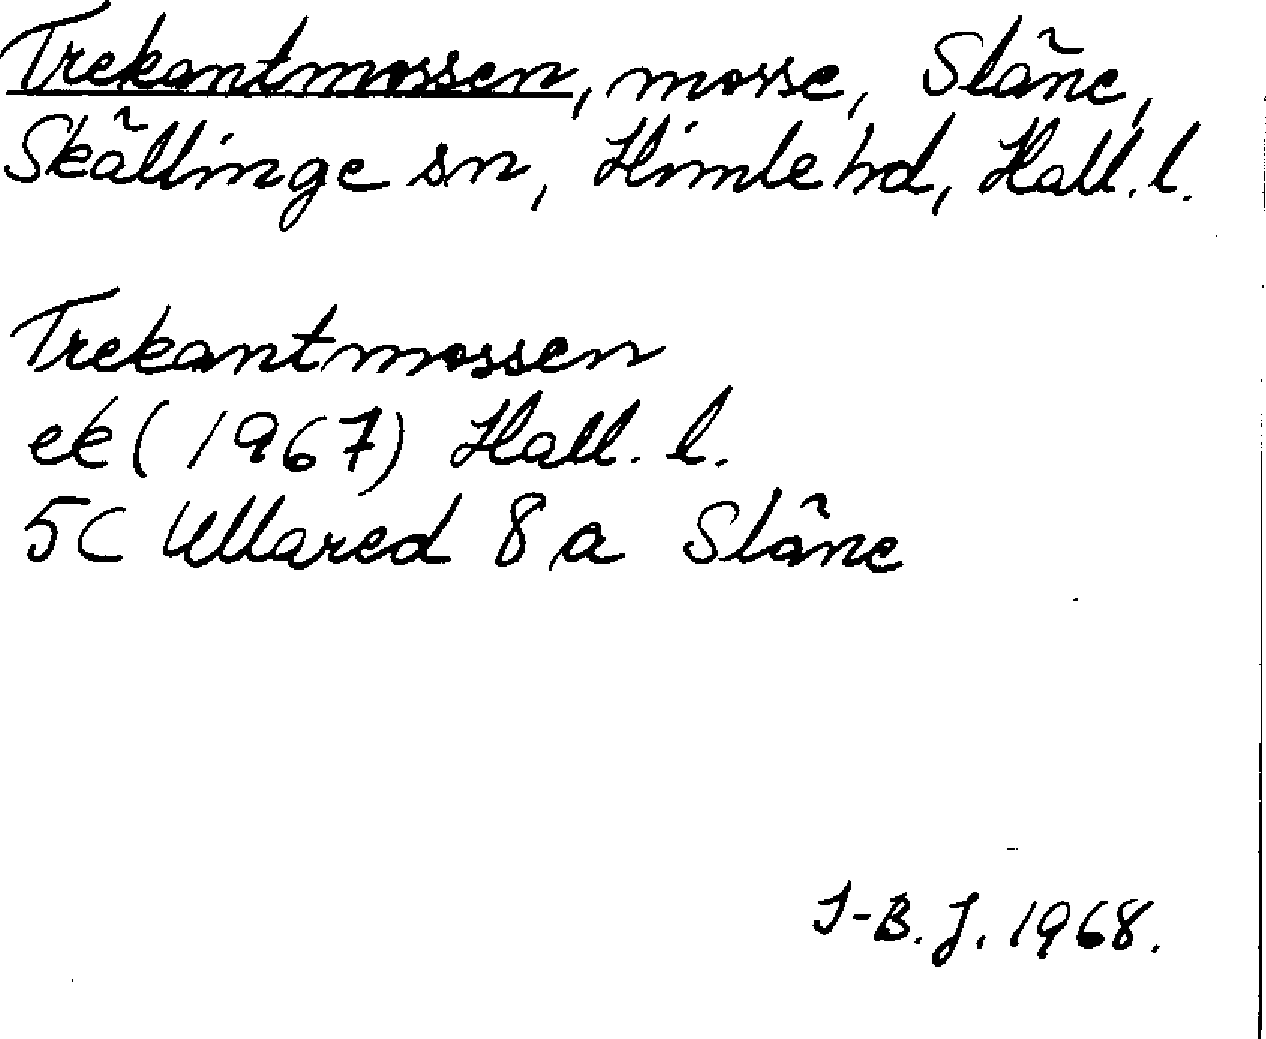 Trekantmossen, mosse, Släne,
Skällinge sn, Himle hd, Hall. l.
Trekantmossen
ek (1967) Hall. l.
5C Ullared 8 a Släne
I-B. J. 1968.